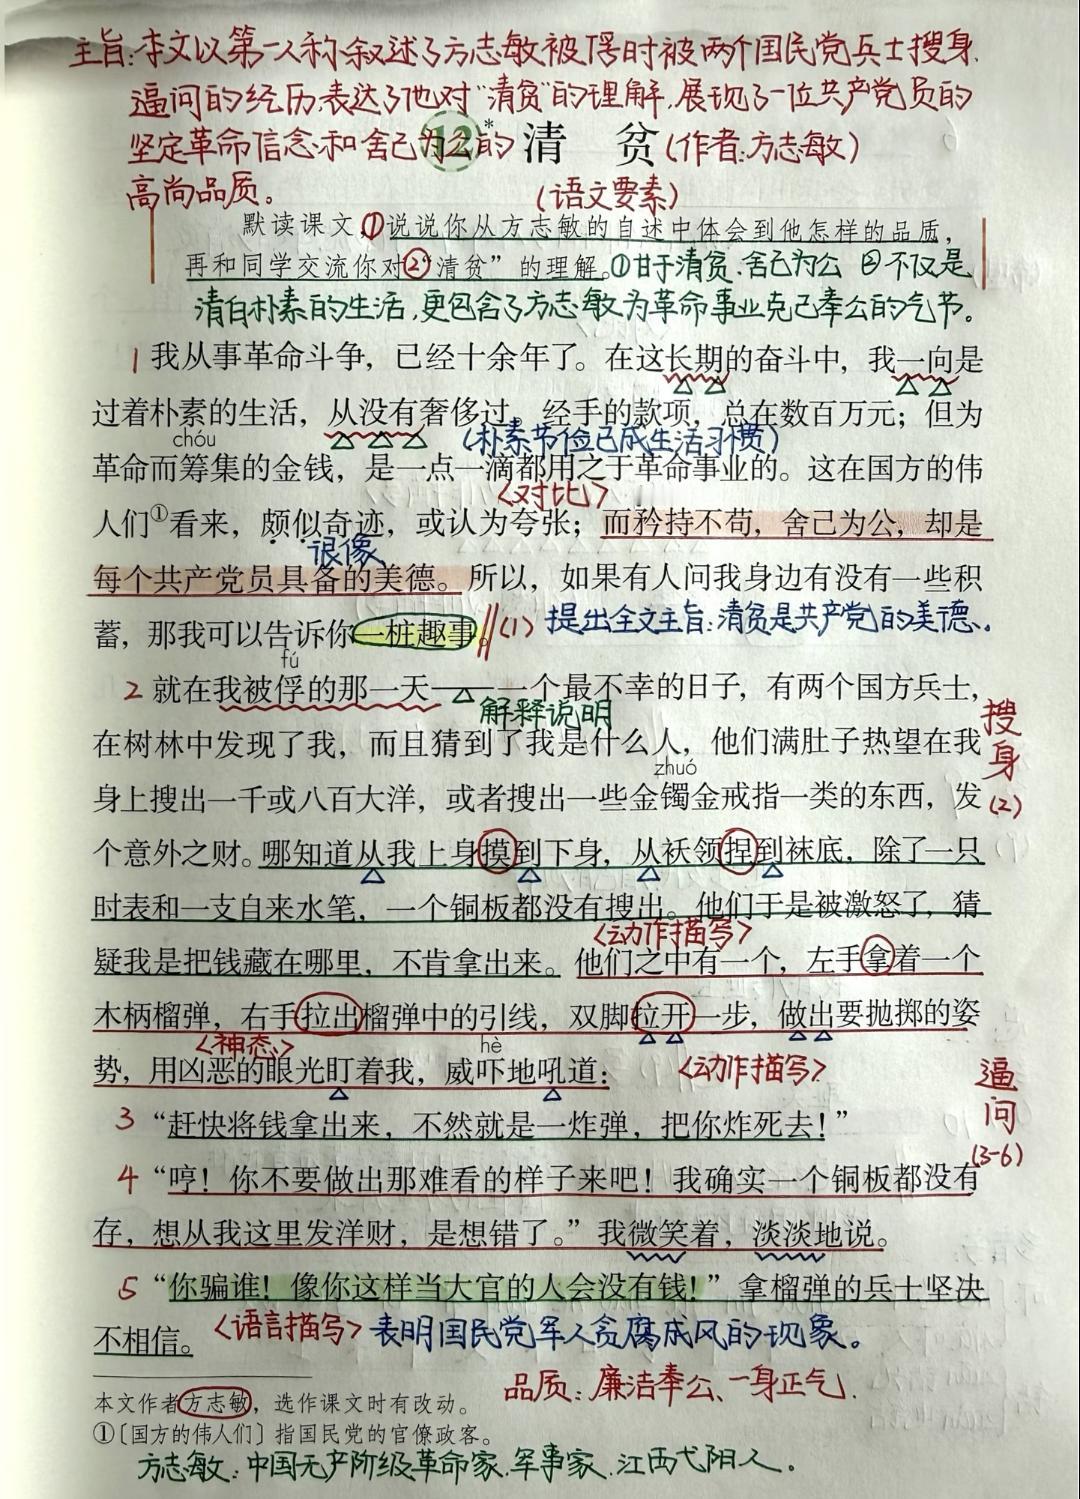 主旨:本文以第一人称叙述了方志敏被俘时被两个国民党兵士搜身、
逼问的经历,表达了他对“清贫”的理解,展现了一位共产党员的
坚定革命信念和舍己为公的
12* 清 贫(作者:方志敏)
高尚品质。
(语文要素)
默读课文,①说说你从方志敏的自述中体会到他怎样的品质,
再和同学交流你对②“清贫”的理解。①甘于清贫、舍己为公 ②不仅是
清白朴素的生活,更包含了方志敏为革命事业克己奉公的气节。
1 我从事革命斗争,已经十余年了。在这长期的奋斗中,我一向是
过着朴素的生活,从没有奢侈过。经手的款项,总在数百万元;但为
chóu
(朴素节俭已成生活习惯)
革命而筹集的金钱,是一点一滴都用之于革命事业的。这在国方的伟
<对比>
人们①看来,颇似奇迹,或认为夸张;而矜持不苟,舍己为公,却是
很像
每个共产党员具备的美德。所以,如果有人问我身边有没有一些积
蓄,那我可以告诉你一桩趣事。(1) 提出全文主旨:清贫是共产党的美德。
fú
2 就在我被俘的那一天——一个最不幸的日子,有两个国方兵士,
解释说明
搜身(2)
在树林中发现了我,而且猜到了我是什么人,他们满肚子热望在我
zhuó
身上搜出一千或八百大洋,或者搜出一些金镯金戒指一类的东西,发
个意外之财。哪知道从我上身摸到下身,从袄领捏到袜底,除了一只
时表和一支自来水笔,一个铜板都没有搜出。他们于是被激怒了,猜
<动作描写>
疑我是把钱藏在哪里,不肯拿出来。他们之中有一个,左手拿着一个
木柄榴弹,右手拉出榴弹中的引线,双脚拉开一步,做出要抛掷的姿
<神态>
hè
势,用凶恶的眼光盯着我,威吓地吼道: <动作描写>
逼问(3-6)
3 “赶快将钱拿出来,不然就是一炸弹,把你炸死去!”
4 “哼!你不要做出那难看的样子来吧!我确实一个铜板都没有
存,想从我这里发洋财,是想错了。”我微笑着,淡淡地说。
5 “你骗谁!像你这样当大官的人会没有钱!”拿榴弹的兵士坚决
不相信。 <语言描写> 表明国民党军人贪腐成风的现象。
品质:廉洁奉公、一身正气.
本文作者方志敏,选作课文时有改动。
①〔国方的伟人们〕指国民党的官僚政客。
方志敏:中国无产阶级革命家、军事家、江西弋阳人。